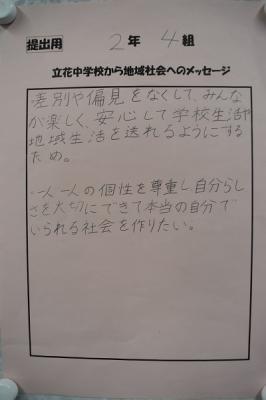 提出用 2年 4組
立花中学校から地域社会へのメッセージ
差別や偏見をなくして、みんな
が楽しく、安心して学校生活や
地域生活を送れるようにする
ため。
一人一人の個性を尊重し、自分らし
さを大切にできて本当の自分で
いられる社会を作りたい。